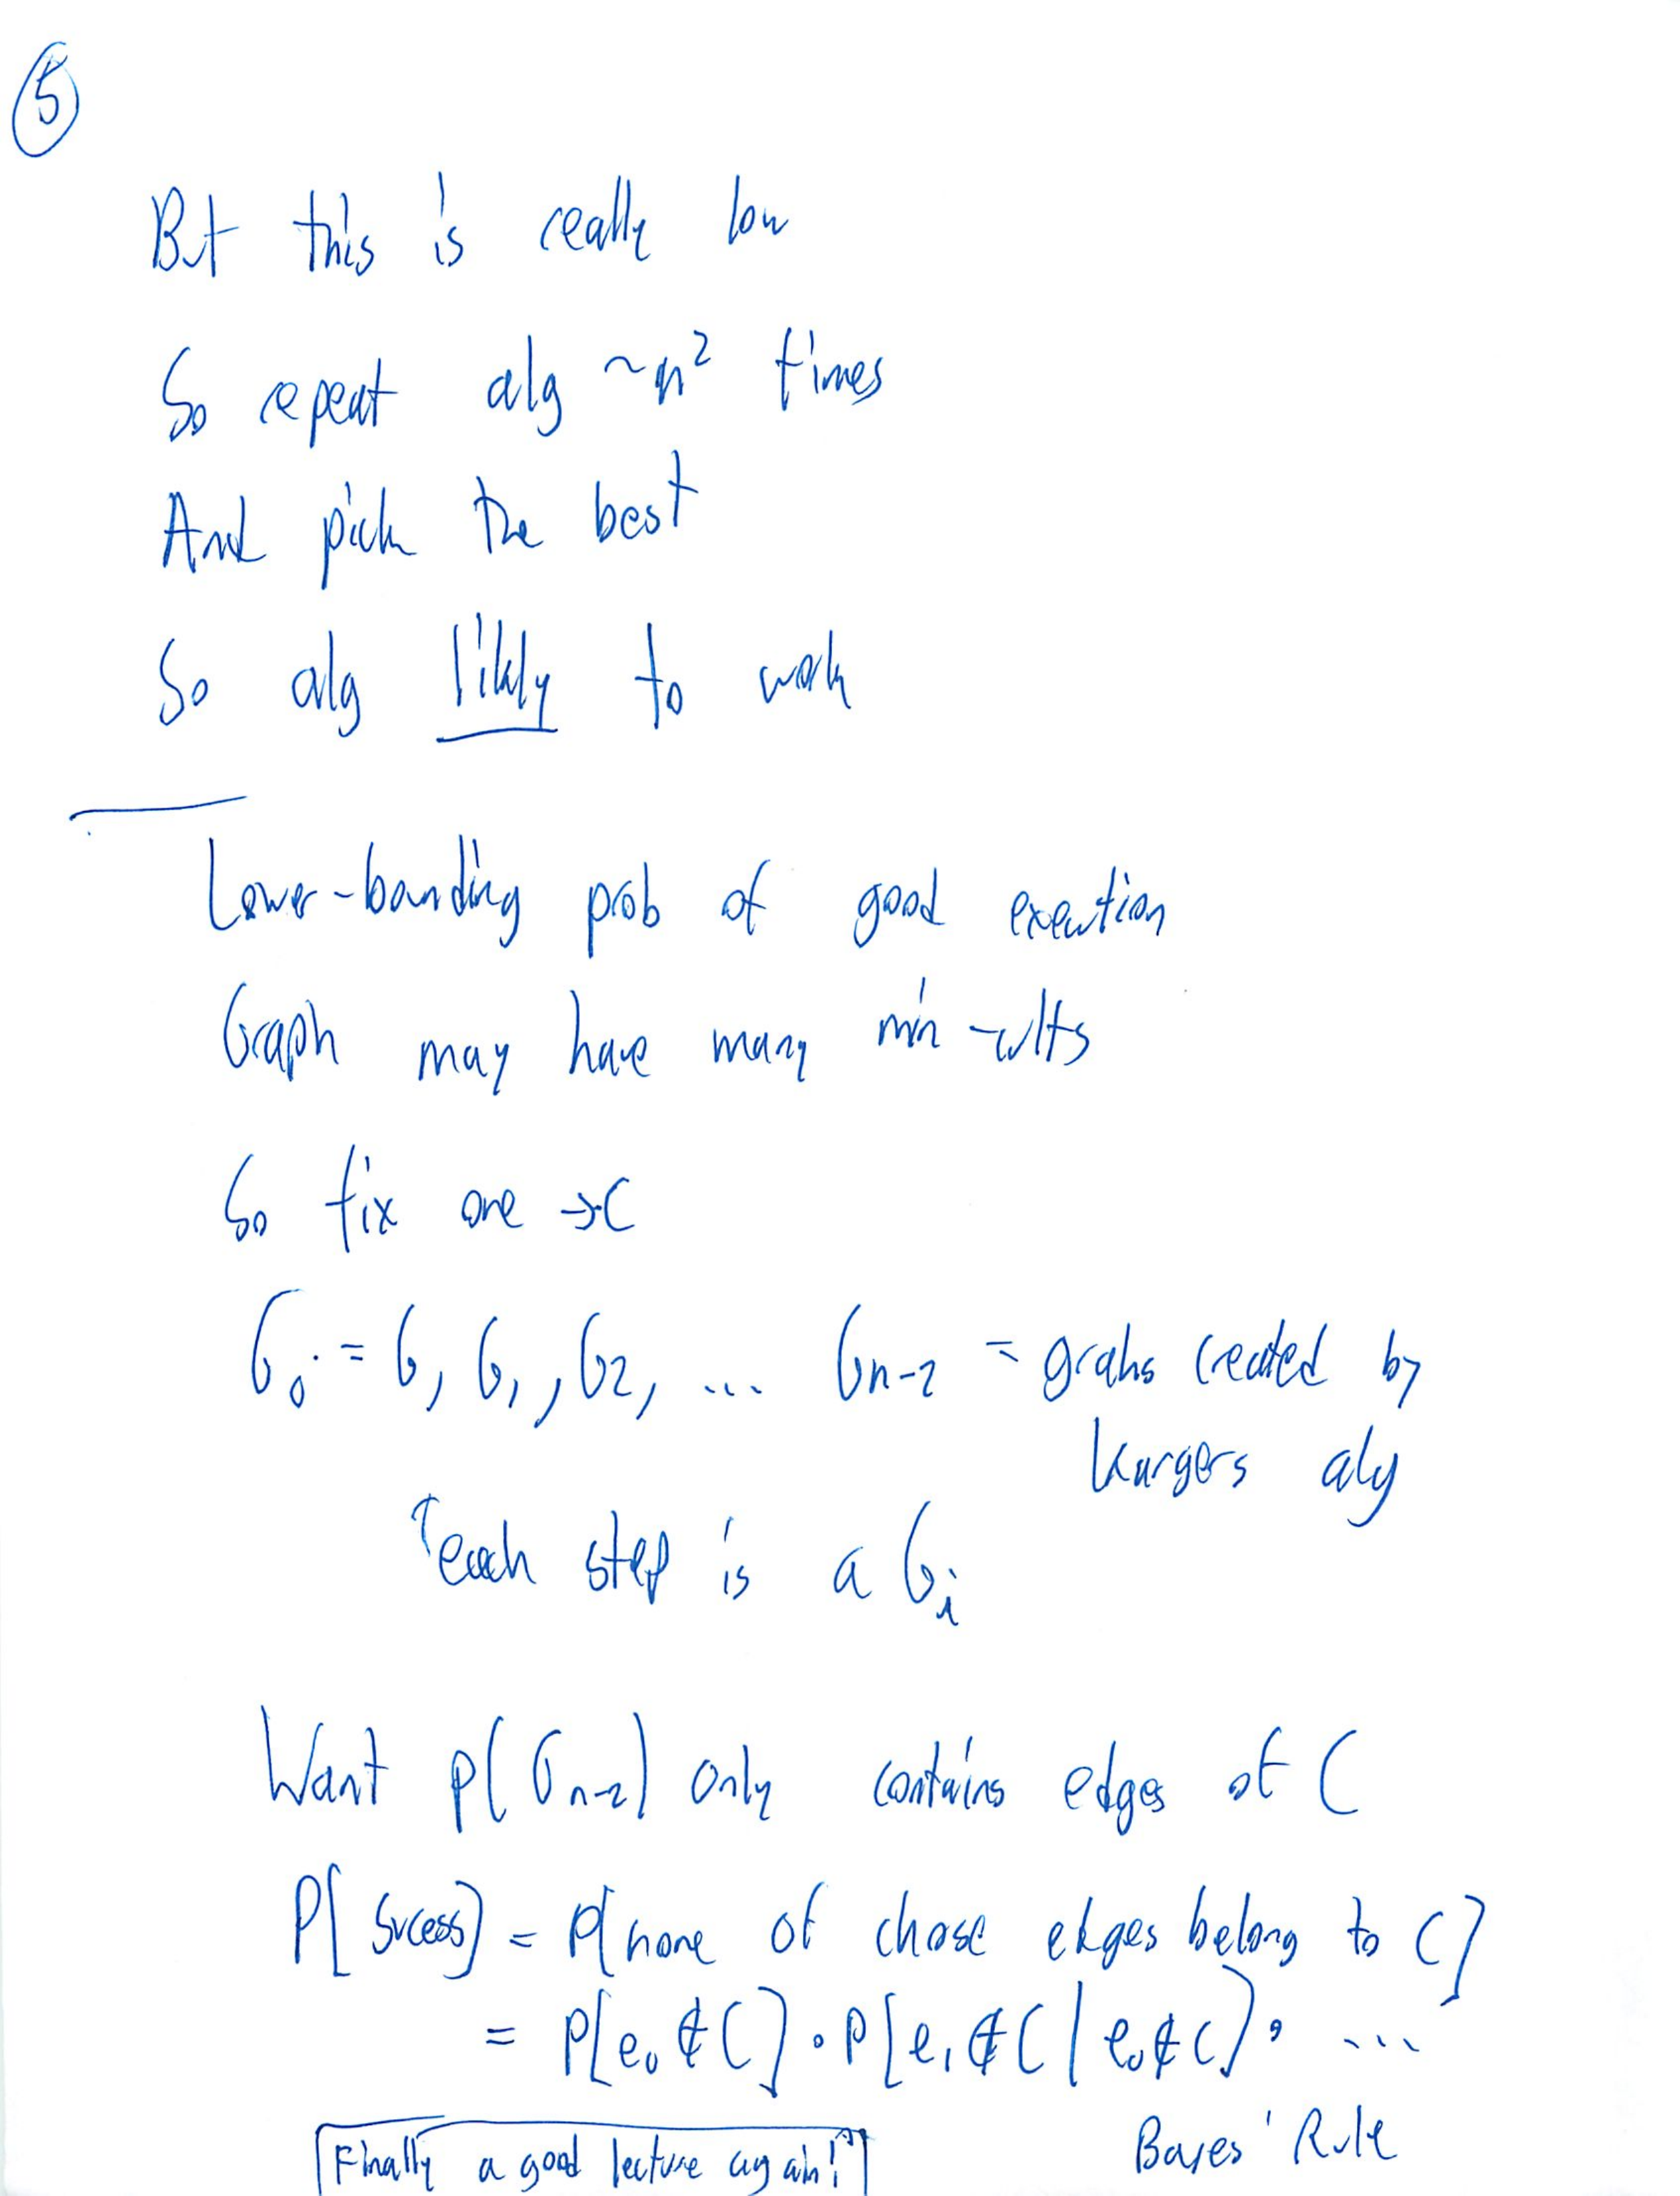 5
But this is really low
So repeat alg ~n² times
And pick the best
So alg likly to work
Lower-bounding prob of good execution
Graph may have many min-cuts
So fix one → C
G₀ := G, G₁, G₂, ... Gn-2 = grahs created by
Kargers alg
↑each step is a Gᵢ
Want P(Gn-2) only contains edges of C
P[Sucess] = P[none of chose edges belong to C]
= P[e₀ ∉ C] · P[e₁ ∉ C | e₀ ∉ C] · ...
Bayes' Rule
Finally a good lecture again!